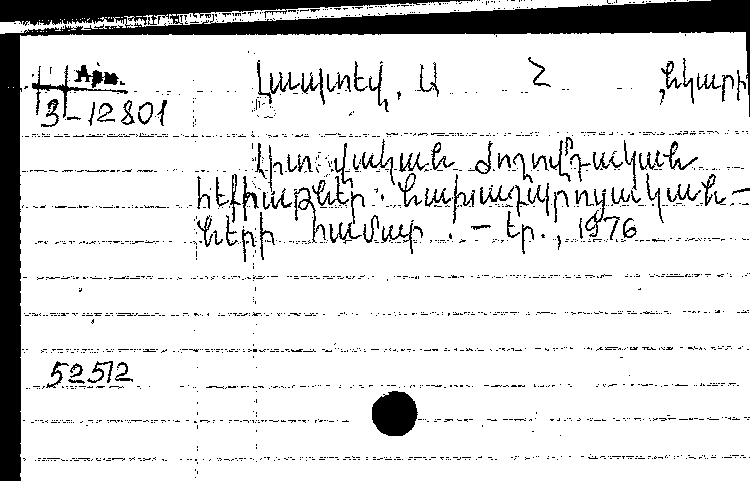 Արտ.
3-12801
Լապտեվ, Ա Հ , նկարի
Լիտվական ժողովրդական
հեքիաթներ. նախադպրոցական-
ների համար. - Եր., 1976
52512